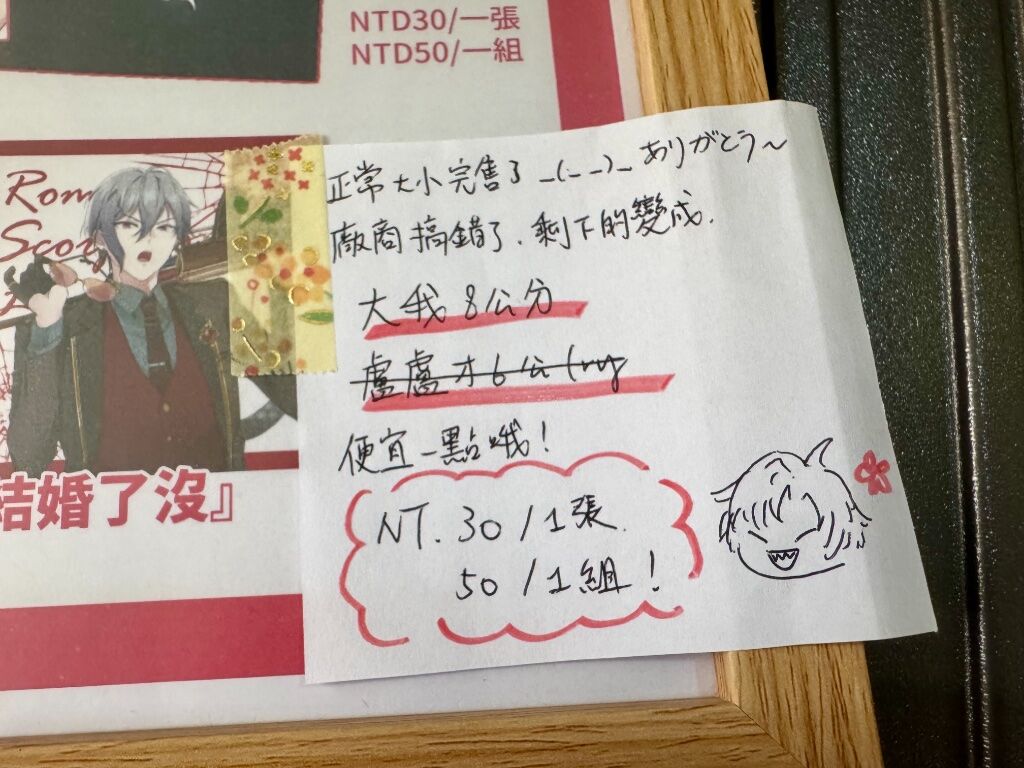 NTD30/一張
NTD50/一組
Rom
Sco
結婚了沒』
正常大小完售了 _(._.)_ ありがとう～
廠商搞錯了、剩下的變成、
大我8公分
盧盧才6公分
便宜一點哦！
NT. 30 / 1張
50 / 1組！